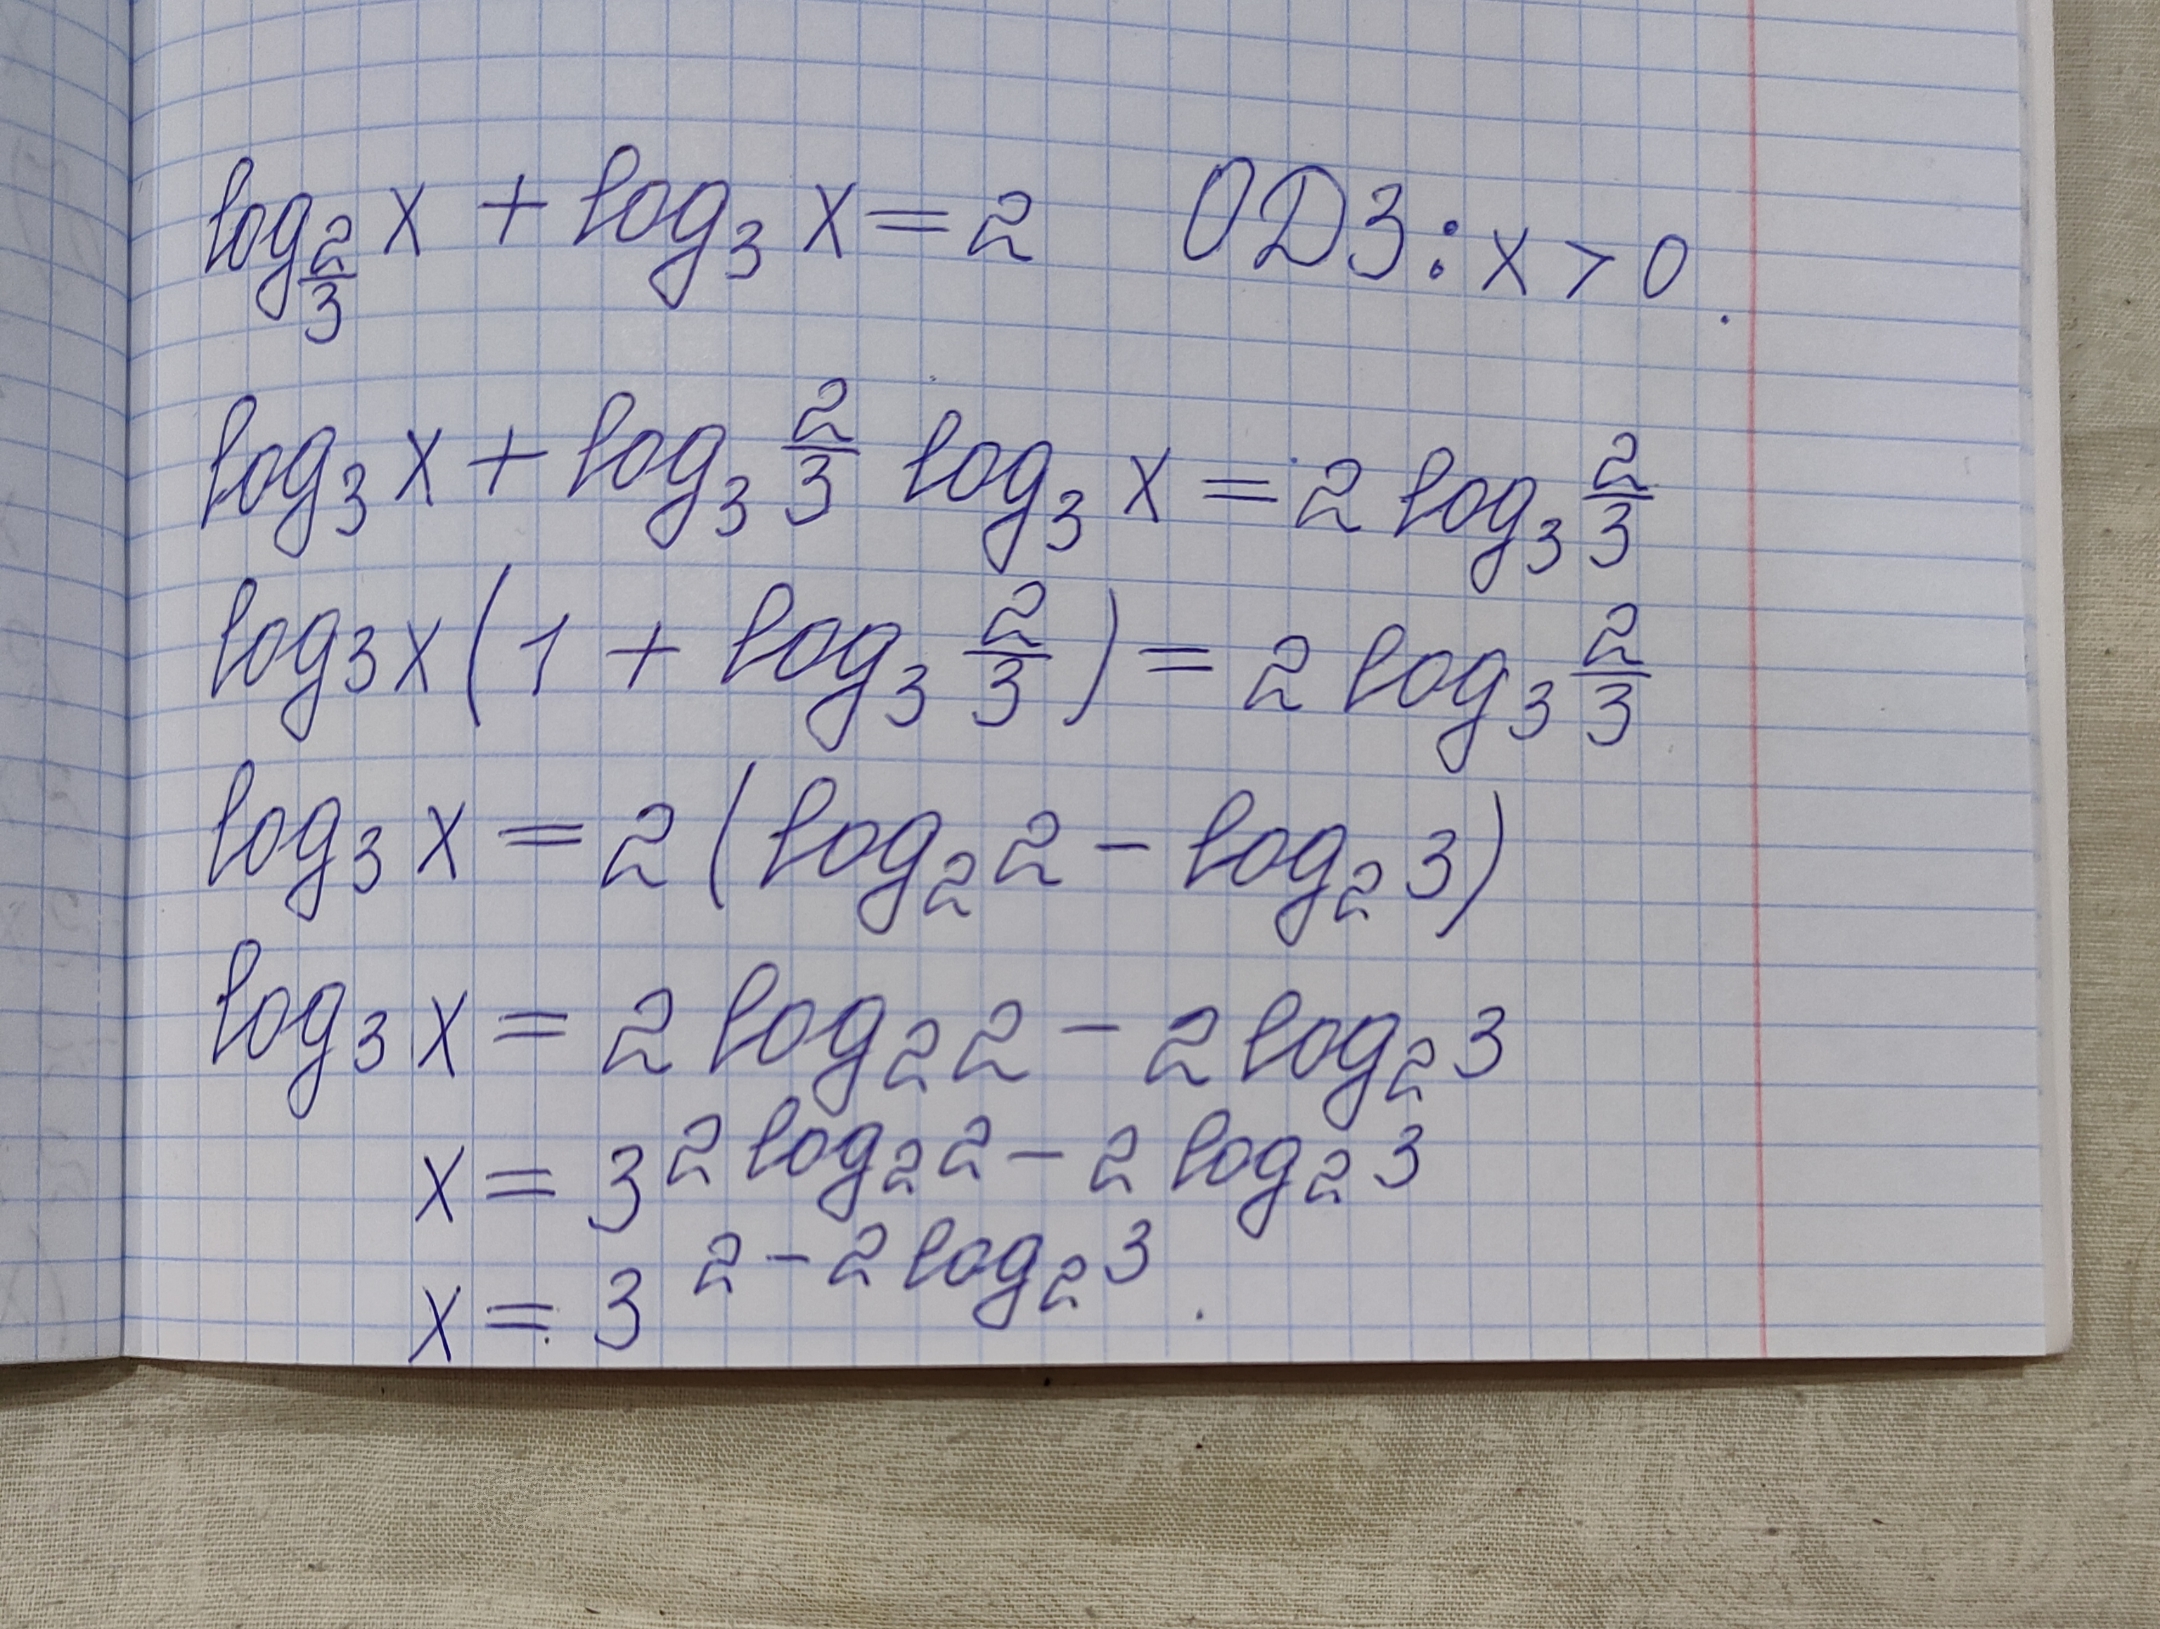 log_{2/3} x + log_3 x = 2   ОДЗ: x > 0.
log_3 x + log_3 2/3 log_3 x = 2 log_3 2/3
log_3 x (1 + log_3 2/3) = 2 log_3 2/3
log_3 x = 2 (log_2 2 - log_2 3)
log_3 x = 2 log_2 2 - 2 log_2 3
x = 3^{2 log_2 2 - 2 log_2 3}
x = 3^{2 - 2 log_2 3}.